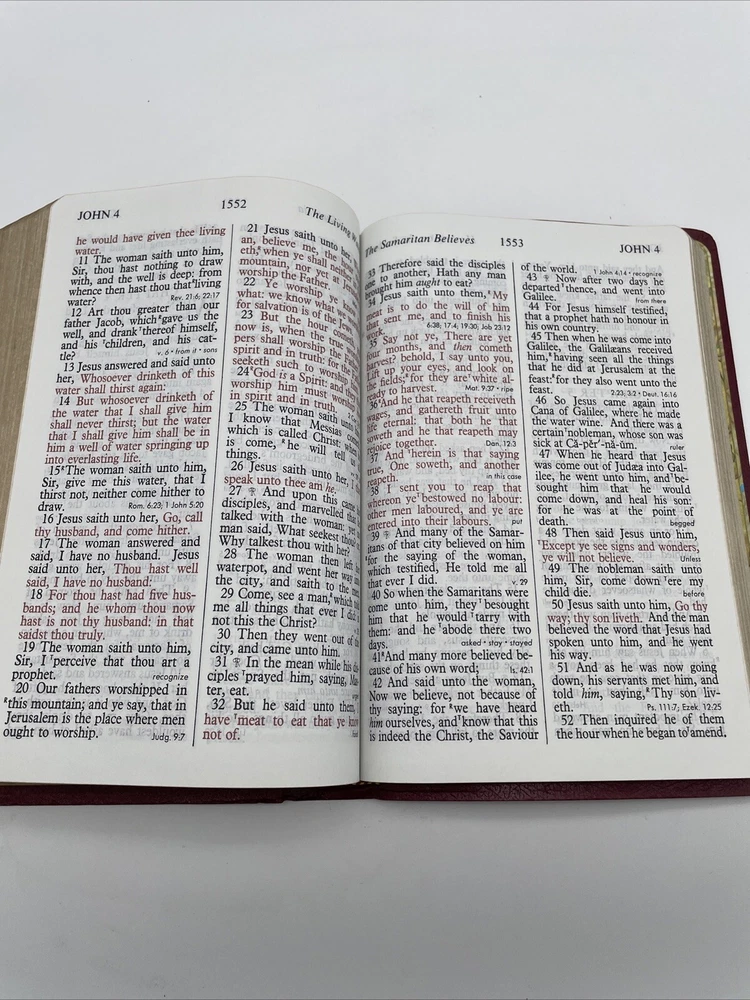 JOHN 4
1552
The Living
he would have given thee living
water.
11 The woman saith unto him,
Sir, thou hast nothing to draw
with, and the well is deep: from
whence then hast thou that living
water?
Rev. 21:6; 22:17
12 Art thou greater than our
father Jacob, which gave us the
well, and drank thereof himself,
and his children, and his cat-
tle?
v. 6 • from it • sons
13 Jesus answered and said unto
her, Whosoever drinketh of this
water shall thirst again:
14 But whosoever drinketh of
the water that I shall give him
shall never thirst; but the water
that I shall give him shall be in
him a well of water springing up
into everlasting life.
15 The woman saith unto him,
Sir, give me this water, that I
thirst not, neither come hither to
draw.
Rom. 6:23; 1 John 5:20
16 Jesus saith unto her, Go, call
thy husband, and come hither.
17 The woman answered and
said, I have no husband. Jesus
said unto her, Thou hast well
said, I have no husband:
18 For thou hast had five hus-
bands; and he whom thou now
hast is not thy husband: in that
saidst thou truly.
19 The woman saith unto him,
Sir, I perceive that thou art a
prophet.
recognize
20 Our fathers worshipped in
this mountain; and ye say, that in
Jerusalem is the place where men
ought to worship.
Judg. 9:7
21 Jesus saith unto her,
an, believe me, the
eth, when ye shall neither
mountain, nor yet at
worship the Father.
22 Ye worship ye
what: we know what we
for salvation is of the Jews.
23 But the hour cometh,
now is, when the true
pers shall worship the Father
spirit and in truth: for the
seeketh such to worship
24 God is a Spirit: and
worship him must worship
in spirit and in truth.
25 The woman saith unto
I know that Messias
which is called Christ: when
is come, he will tell
things.
26 Jesus saith unto her,
speak unto thee am he.
27 And upon this came
disciples, and marvelled that
talked with the woman: yet
man said, What seekest thou?
Why talkest thou with her?
28 The woman then left
waterpot, and went her way
the city, and saith to the
29 Come, see a man, which told
me all things that ever I did:
not this the Christ?
30 Then they went out of the
city, and came unto him.
31 In the mean while his dis-
ciples prayed him, saying, Mas-
ter, eat.
32 But he said unto them, I
have meat to eat that ye know
not of.
The Samaritan Believes
1553
JOHN 4
33 Therefore said the disciples
one to another, Hath any man
brought him aught to eat?
34 Jesus saith unto them, My
meat is to do the will of him
that sent me, and to finish his
6:38; 17:4; 19:30; Job 23:12
35 Say not ye, There are yet
four months, and then cometh
harvest? behold, I say unto you,
Lift up your eyes, and look on
the fields; for they are white al-
ready to harvest.
Mat. 9:37 • ripe
36 And he that reapeth receiveth
wages, and gathereth fruit unto
life eternal: that both he that
soweth and he that reapeth may
rejoice together.
Dan. 12:3
37 And herein is that saying
true, One soweth, and another
reapeth.
in this case
38 I sent you to reap that
whereon ye bestowed no labour:
other men laboured, and ye are
entered into their labours.
put
39 And many of the Samar-
itans of that city believed on him
for the saying of the woman,
which testified, He told me all
that ever I did.
v. 29
40 So when the Samaritans were
come unto him, they besought
him that he would tarry with
them: and he abode there two
days.
asked • stay • stayed
41 And many more believed be-
cause of his own word;
Is. 42:1
42 And said unto the woman,
Now we believe, not because of
thy saying: for we have heard
him ourselves, and know that this
is indeed the Christ, the Saviour
of the world.
1 John 4:14 • recognize
43 Now after two days he
departed thence, and went into
Galilee.
from there
44 For Jesus himself testified,
that a prophet hath no honour in
his own country.
45 Then when he was come into
Galilee, the Galilæans received
him, having seen all the things
that he did at Jerusalem at the
feast: for they also went unto the
feast.
2:23; 3:2 • Deut. 16:16
46 So Jesus came again into
Cana of Galilee, where he made
the water wine. And there was a
certain nobleman, whose son was
sick at Cā-pẽr'-nā-ŭm.
ruler
47 When he heard that Jesus
was come out of Judæa into Gal-
ilee, he went unto him, and be-
sought him that he would
come down, and heal his son:
for he was at the point of
death.
begged
48 Then said Jesus unto him,
Except ye see signs and wonders,
ye will not believe.
Unless
49 The nobleman saith unto
him, Sir, come down ere my
child die.
before
50 Jesus saith unto him, Go thy
way; thy son liveth. And the man
believed the word that Jesus had
spoken unto him, and he went
his way.
51 And as he was now going
down, his servants met him, and
told him, saying, Thy son liv-
eth.
Ps. 111:7; Ezek. 12:25
52 Then inquired he of them
the hour when he began to amend.